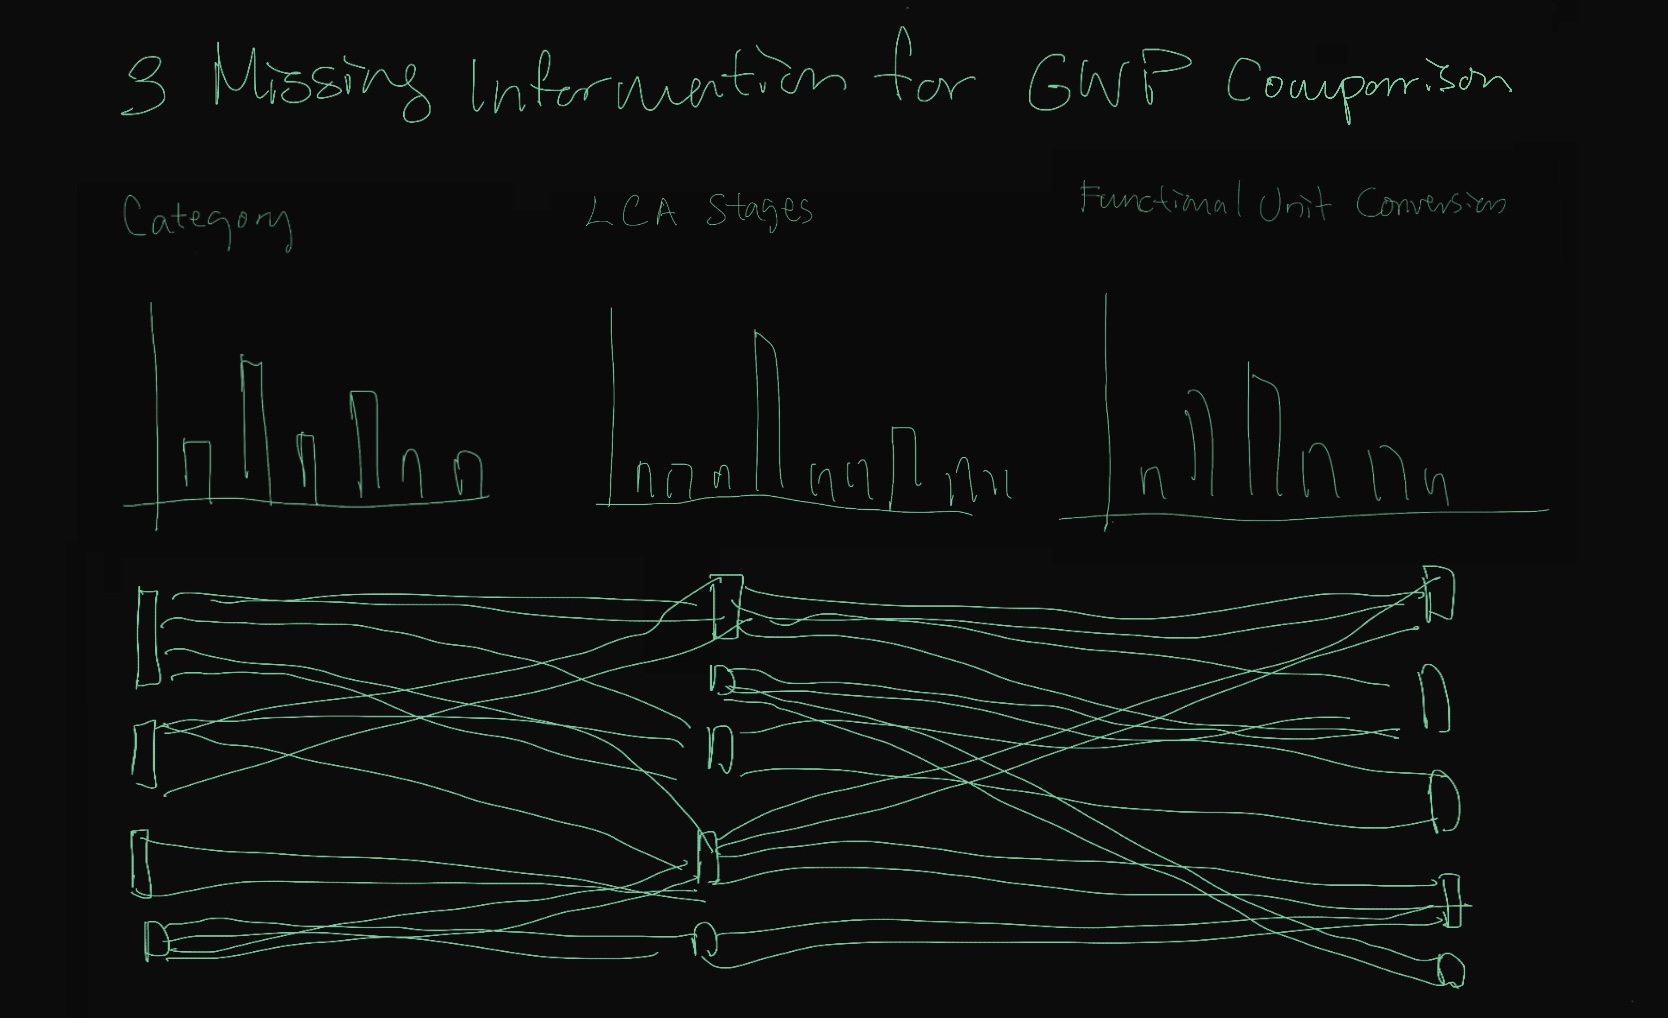 3 Missing Information for GWP Comparison
Category
LCA Stages
Functional Unit Conversion